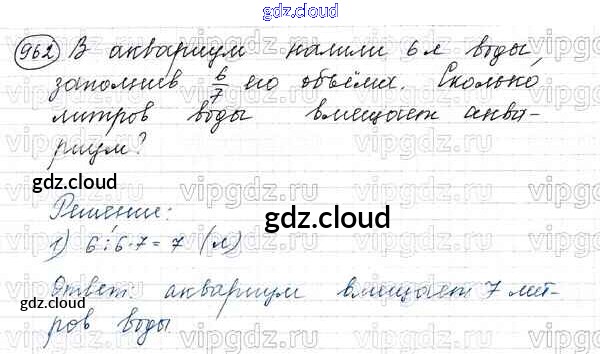 gdz.cloud
962 В аквариум налили 6 л воды,
заполнив 6/7 его объёма. Сколько
литров воды вмещает аква-
риум?
gdz.cloud
gdz.cloud
gdz.cloud
Решение:
1) 6:6·7=7 (л)
Ответ: аквариум вмещает 7 лит-
gdz.cloud
ров воды
vipgdz.ru